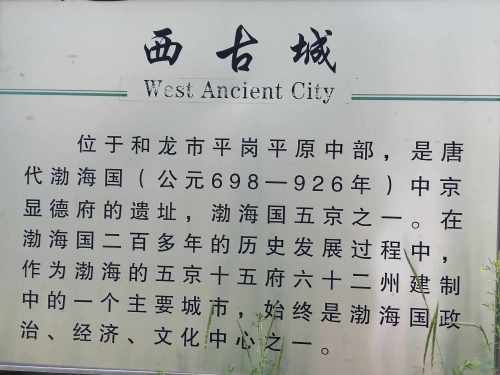 西古城
West Ancient City
位于和龙市平岗平原中部，是唐
代渤海国（公元698—926年）中京
显德府的遗址，渤海国五京之一。在
渤海国二百多年的历史发展过程中，
作为渤海的五京十五府六十二州建制
中的一个主要城市，始终是渤海国政
治、经济、文化中心之一。